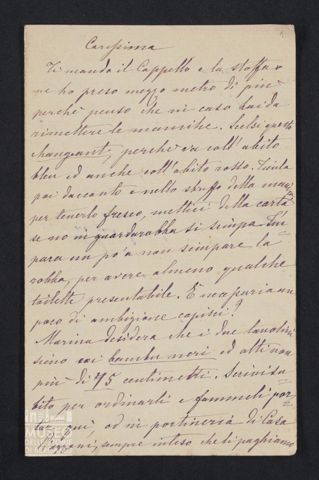 Carissima
Ti mando il Cappello e la stoffa
ne ho preso mezzo metro di più
perchè penso che in caso hai da
rimettere le maniche. Scelsi questo
changeant, perchè va coll'abito
bleu ed anche coll'abito rosso.
poi daccanto e nello sboffo della
per tenerlo fresco, mettici della carta
se no in guardarobba si sciupa. Im=
para un po' a non sciupare la
robba, per avere almeno qualche
toilette presentabile. E un
poco di ambizione capisci?
Marina desidera che i due tavolini
sieno bambù neri ed alti non
più di 75 centimetri. Scrivi su=
bito per ordinarli e fammeli por=
qui, od in portineria di Casa
sempre inteso che li paghiamo
MUSEO